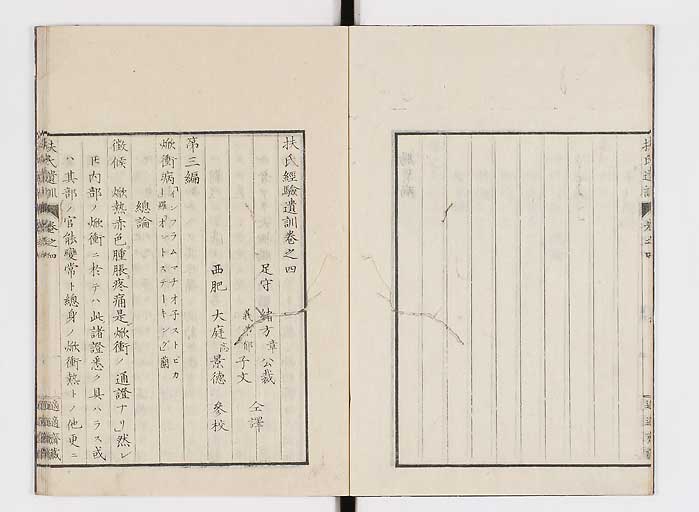 扶氏經驗遺訓卷之四
足守 緒方章公裁
義慎郁子文 仝譯
西肥 大庭忞景德 參校
第三編
焮衝病「インフラムマチオ子ストピカ」羅「オントステーキング」蘭
總論
徴候 焮熱赤色腫脹疼痛是焮衝ノ通證ナリ然レ
𪜈内部ノ焮衝ニ於テハ此諸證悉ク具ハラス或
ハ其部ノ官能變常ト總身ノ焮衝熱トノ他更ニ
扶氏遺訓 卷之四
適適齋藏
扶氏遺訓 卷之四